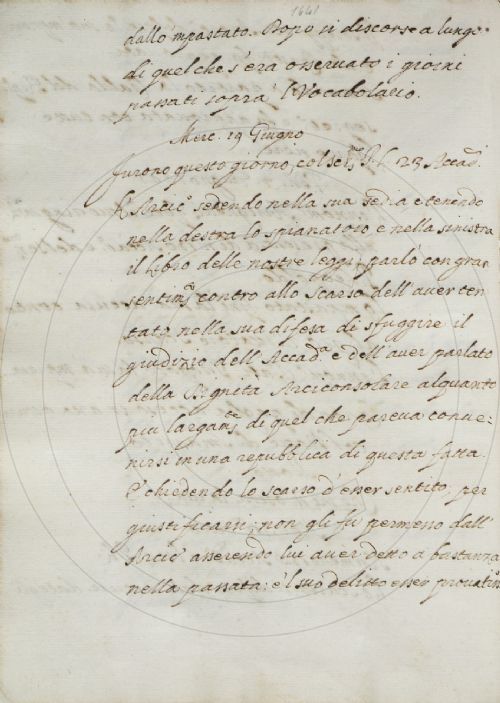 1641
dallo 'mpastato. Dopo si discorse a lungo
di quel che s'era osservato i giorni
passati sopra 'l Vocabolario.
Merc. 19 Giugno
furono questo giorno, col ser.mo P. L. 23 Accad.
L'Arcic.o sedendo nella sua sedia, e tenendo
nella destra lo spianatoio e nella sinistra
il libro delle nostre leggi, parlò con gran
sentim.ti contro allo Scarso dell'aver ten
tato nella sua difesa di sfuggire il
giudizio dell'Accad.a e dell'aver parlato
della Dignità Arciconsolare alquanto
più largam.te di quel che pareva conve-
nirsi in una repubblica di questa fatta.
E chiedendo lo scarso d'esser sentito, per
giustificarsi; non gli fu permesso dall'
Arcic.o asserendo lui aver detto a bastanza
nella passata: e 'l suo delitto esser provatis.o